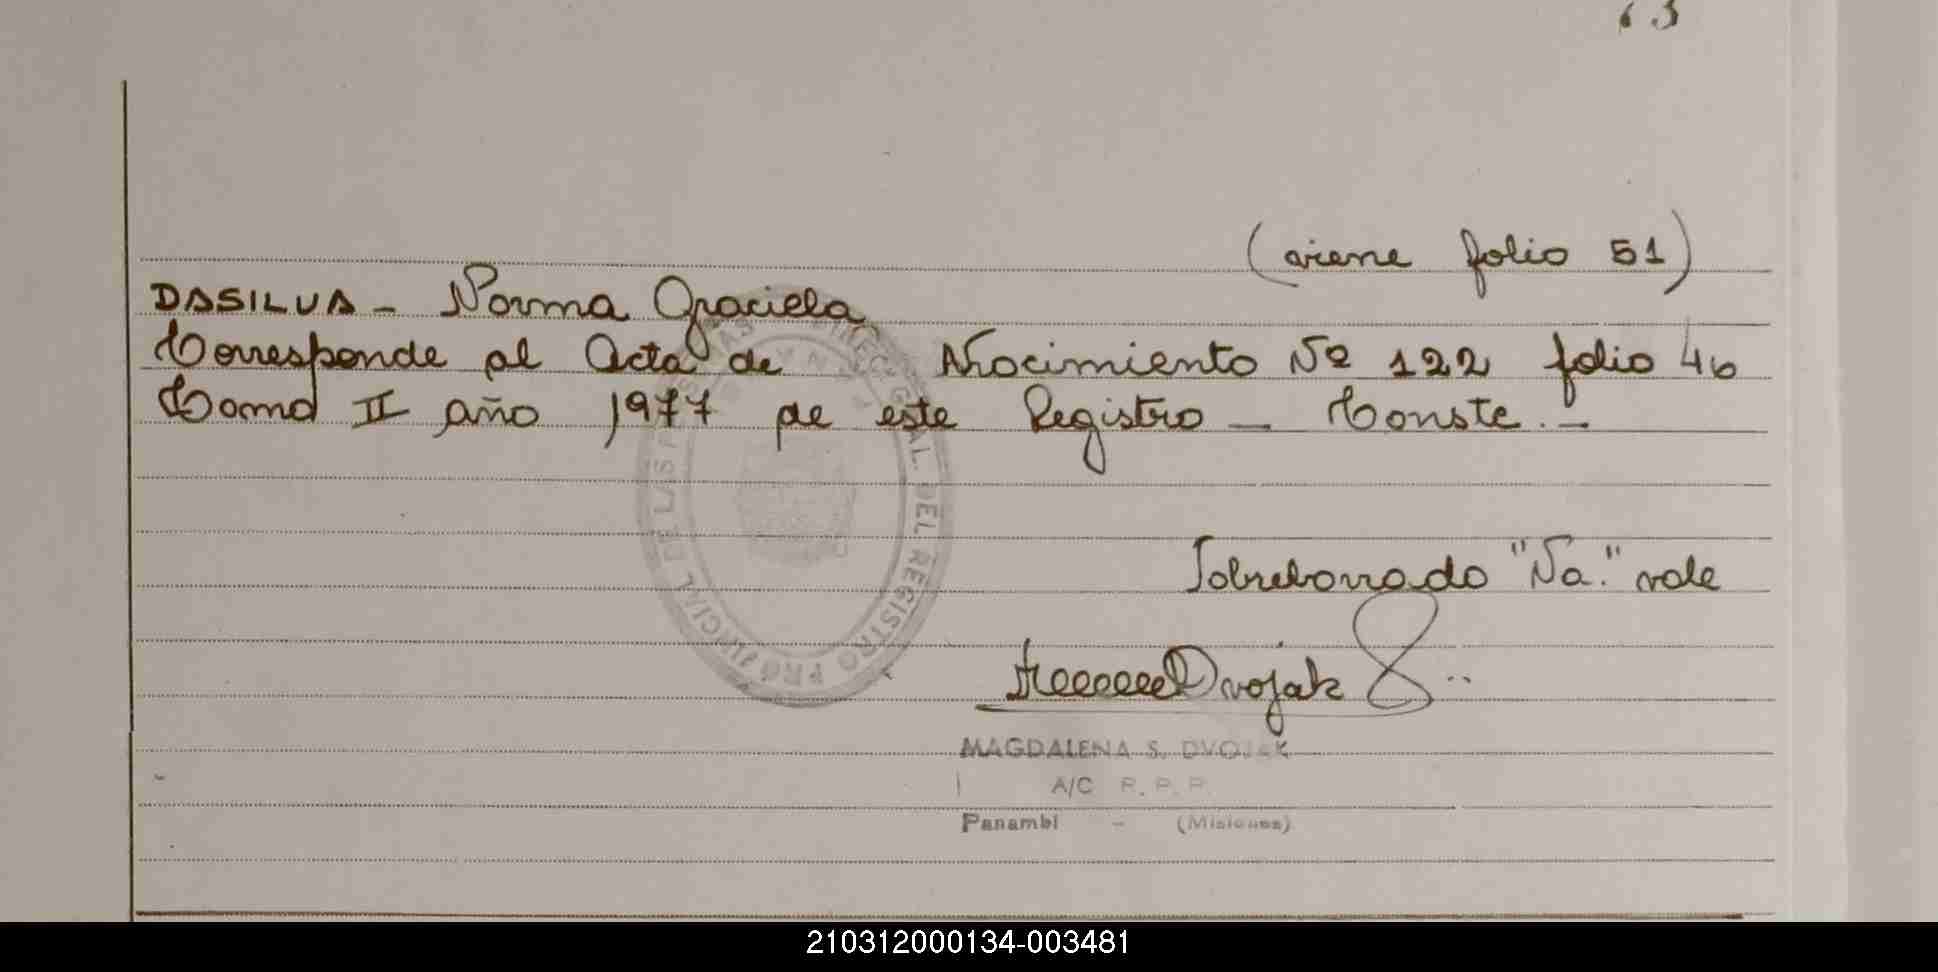 (viene folio 51)
DASILVA - Norma Graciela
Corresponde al Acta de Nacimiento Nº 122 folio 46
Tomo II año 1977 de este Registro - Conste.-
Sobreborrado "Na." vale
Dvojak
MAGDALENA S. DVOJAK
A/C R. P. P.
Panambí - (Misiones)
DIREC. GRAL. DEL REGISTRO PROVINCIAL DE LAS PERSONAS
210312000134-003481